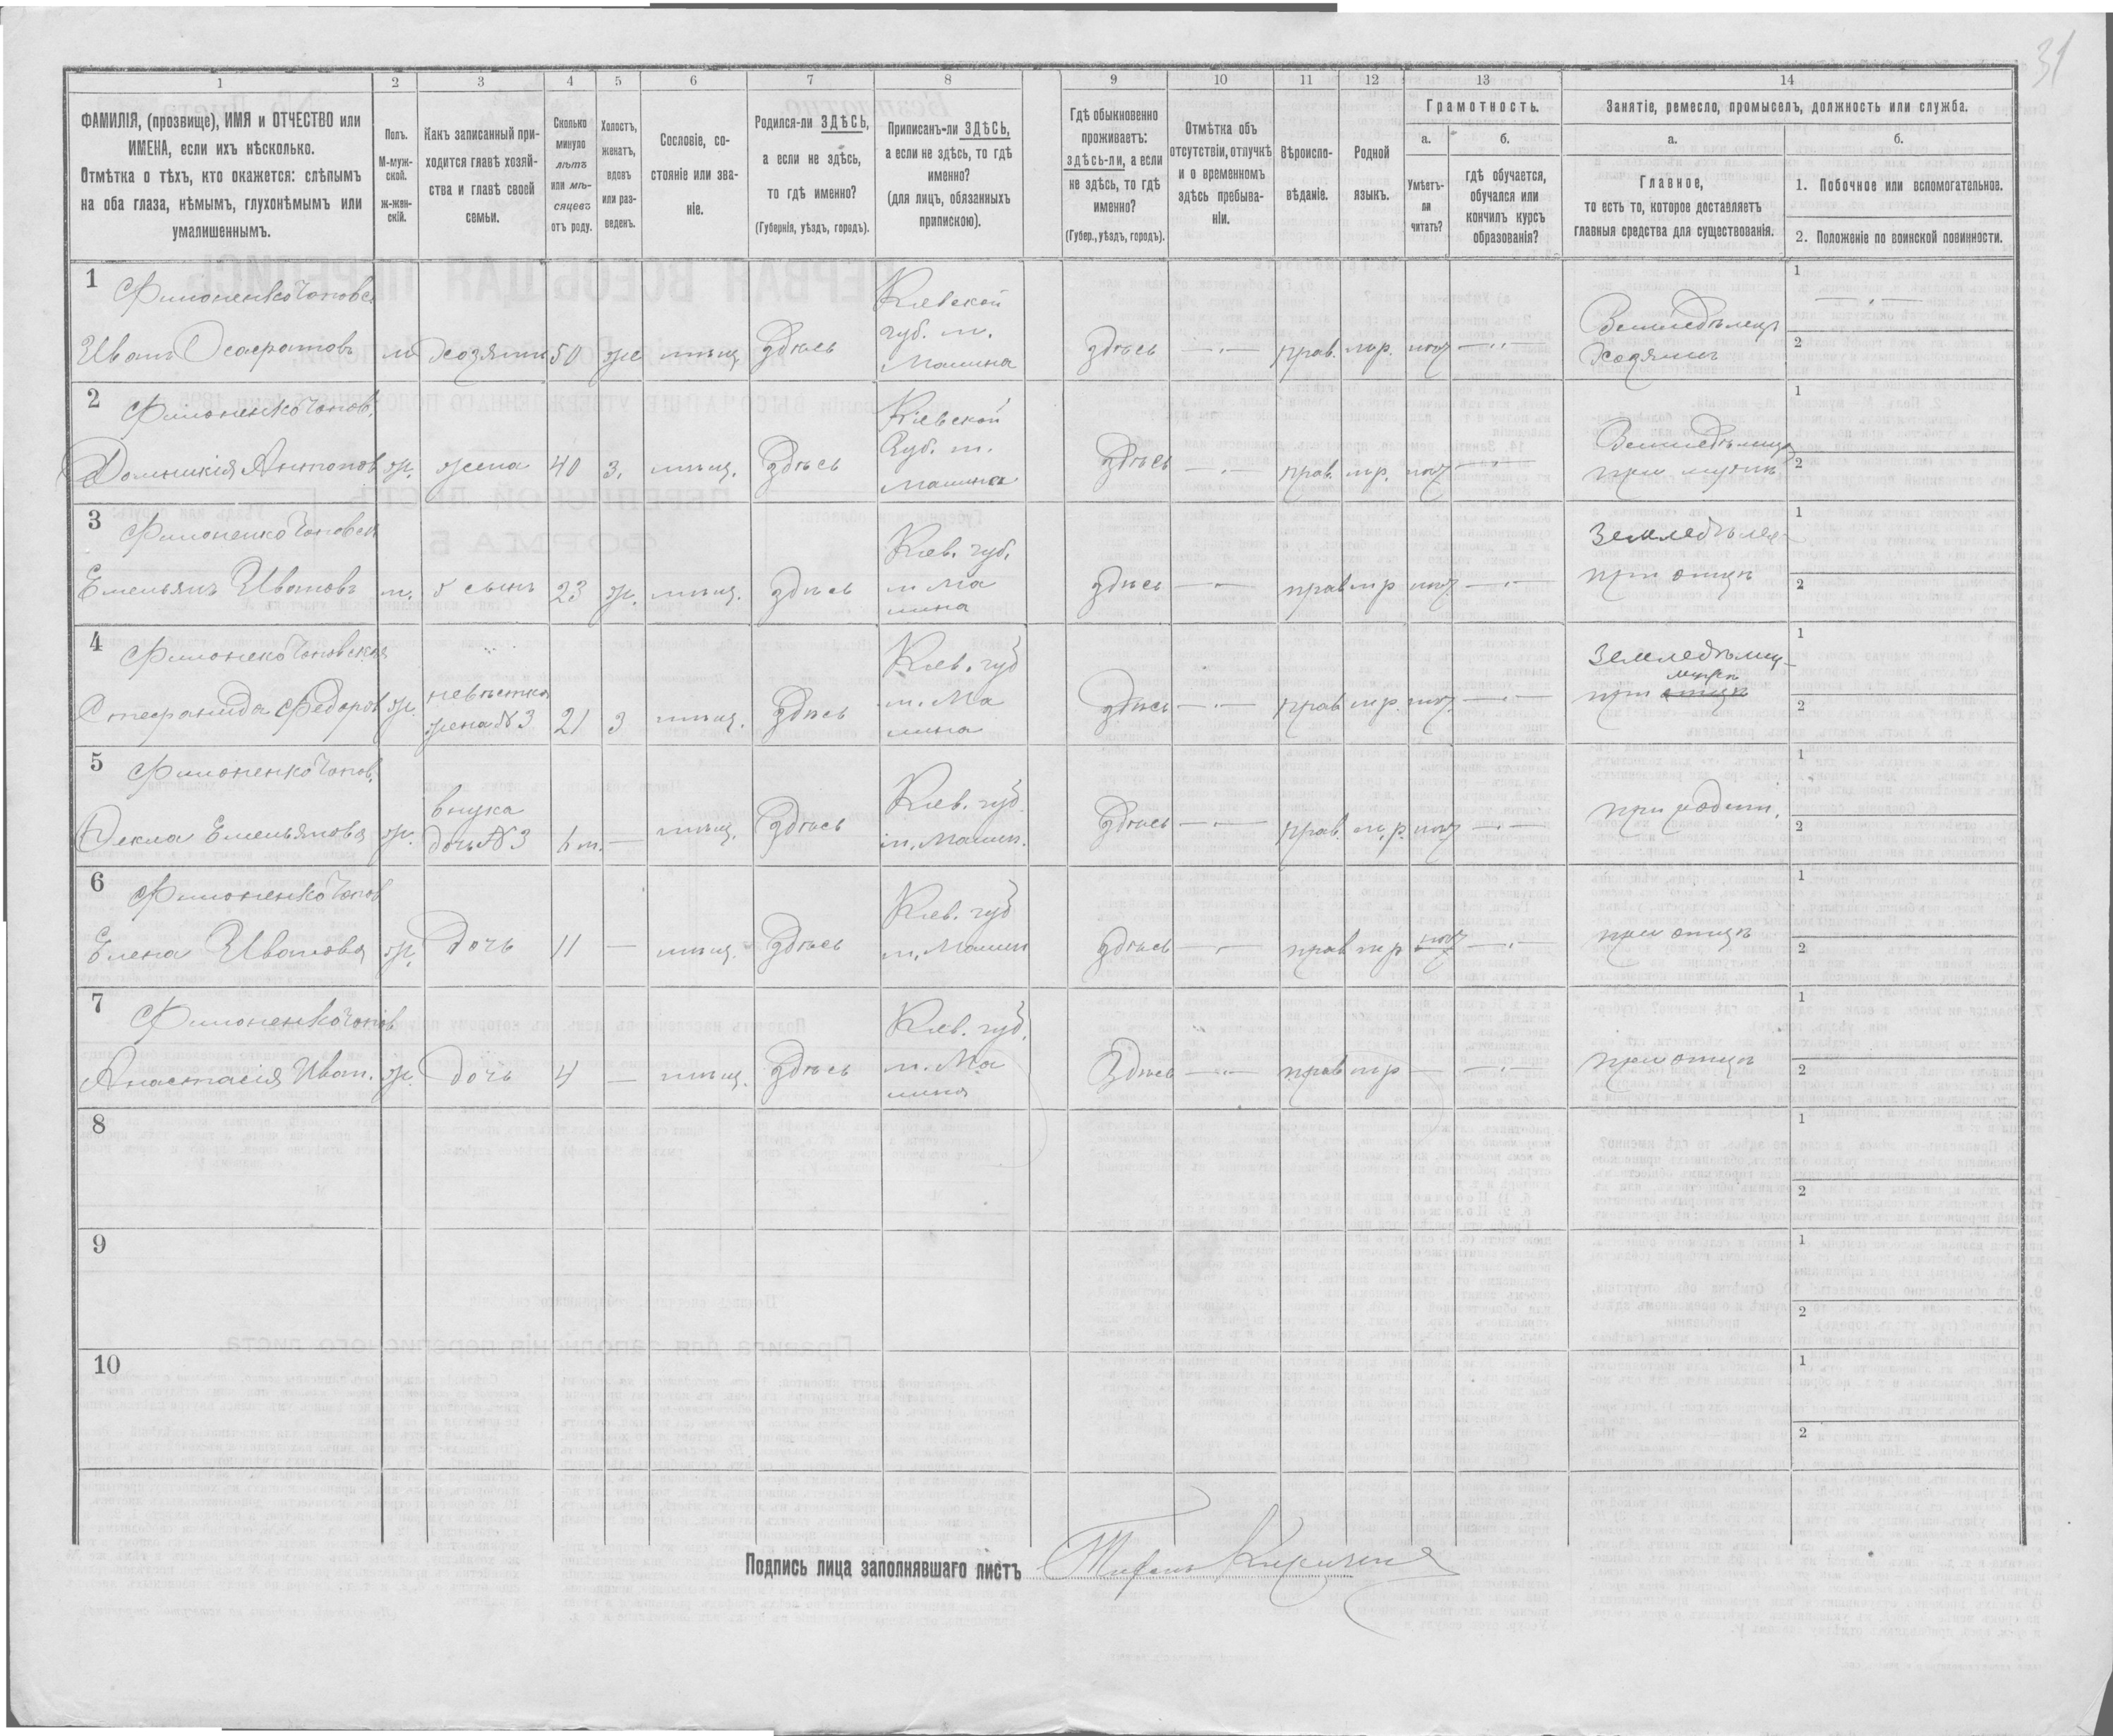 31
1 2 3 4 5 6 7 8 9 10 11 12 13 14
ФАМИЛІЯ, (прозвище), ИМЯ и ОТЧЕСТВО или
ИМЕНА, если ихъ нѣсколько.
Отмѣтка о тѣхъ, кто окажется: слѣпымъ
на оба глаза, нѣмымъ, глухонѣмымъ или
умалишеннымъ.
Полъ.
М-муж-
ской.
Ж-жен-
скій.
Какъ записанный при-
ходится главѣ хозяй-
ства и главѣ своей
семьи.
Сколько
минуло
лѣтъ
или мѣ-
сяцевъ
отъ роду.
Холостъ,
женатъ,
вдовъ
или раз-
веденъ.
Сословіе, со-
стояніе или зва-
ніе.
Родился-ли ЗДѢСЬ,
а если не здѣсь,
то гдѣ именно?
(Губернія, уѣздъ, городъ).
Приписанъ-ли ЗДѢСЬ,
а если не здѣсь, то гдѣ
именно?
(для лицъ, обязанныхъ
припискою).
Гдѣ обыкновенно
проживаетъ:
здѣсь-ли, а если
не здѣсь, то гдѣ
именно?
(Губер., уѣздъ, городъ).
Отмѣтка объ
отсутствіи, отлучкѣ
и о временномъ
здѣсь пребыва-
ніи.
Вѣроиспо-
вѣданіе.
Родной
языкъ.
Грамотность.
а.
Умѣетъ-
ли
читать?
б.
гдѣ обучается,
обучался или
кончилъ курсъ
образованія?
Занятіе, ремесло, промыселъ, должность или служба.
а.
Главное,
то есть то, которое доставляетъ
главныя средства для существованія.
б.
1. Побочное или вспомогательное.
2. Положеніе по воинской повинности.
1
Филоненко Чоповс
Иванъ
м Хозяинъ 50 же мѣщ здѣсь
Кіевской
губ. м.
Малина
здѣсь прав. м.р. нѣт
Хозяинъ
1
2
2
Филоненко Чопов.
Домникія Антонов ж. жена 40 з. мѣщ. здѣсь
Кіевской
Губ. м.
Малина
здѣсь прав. м.р. нѣт
при мужѣ
1
2
3
Филоненко Чоповск
Емельянъ Ивановъ м. сынъ 23 ж. мѣщ. здѣсь
Кіев. губ.
м Ма
лина
здѣсь прав м р нѣт
Земледѣлец
при отцѣ
1
2
4
Филонеко Чоповская
Стефанида Федоров ж.
невѣстка
жена №3
21 з мѣщ. здѣсь
Кіев. губ
м. Ма
лина
здѣсь прав м р. нѣт
Земледѣлиц
при отцѣ мужѣ
1
2
5
Филоненко Чопов.
Фекла Емельянова ж.
внука
дочь №3
мѣщ. здѣсь
Кіев. губ.
м. Малин.
здѣсь прав. м.р. нѣт
при родит.
1
2
6
Филоненко Чопов
Елена Иванова ж. дочь 11 — мѣщ. здѣсь
Кіев. губ
м. Малин
здѣсь прав м р нѣт
при отцѣ
1
2
7
Филоненко Чопов
Анастасія Иван. ж. дочь 4 — мѣщ. здѣсь
Кіев. губ.
м. Ма
лина
Здѣсь прав м р —
при отцѣ
1
2
8
1
2
9
1
2
10
1
2
Подпись лица заполнявшаго листъ